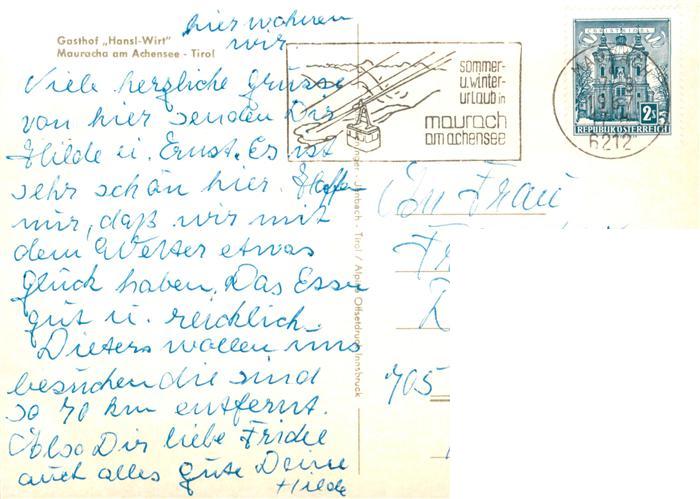 hier wohnen
wir
Gasthof „Hansl-Wirt"
Mauracha am Achensee - Tirol
Viele herzliche Grüsse
von hier senden Dir
Hilde u. Ernst. Es ist
sehr schön hier. Hoffen
mir, daß wir mit
dem Wetter etwas
glück haben. Das Essen
gut u. reichlich.
Dieters wollen uns
besuchen die sind
so 70 km entfernt.
Also Dir liebe Friedel
auch alles gute Deine
Hilde
sommer-
u. winter-
urlaub in
maurach
am achensee
CHRISTKINDL
2S
REPUBLIK ÖSTERREICH
6212
Jenbach - Tirol / Alpina Offsetdruck Innsbruck
An Frau
705